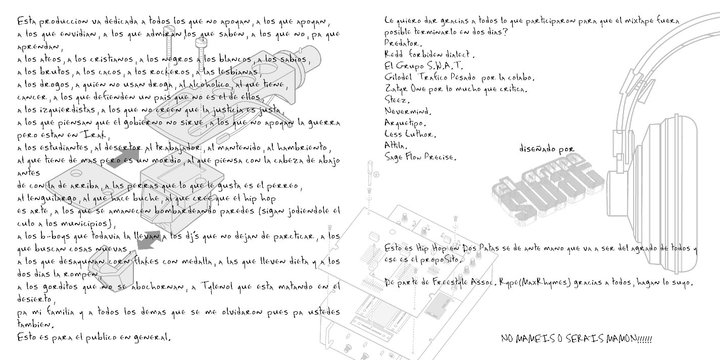 Esta produccion va dedicada a todos los que no apoyan, a los que apoyan,
a los que envidian, a los que admiran los que saben, a los que no, pa que
aprendan,
a los ateos, a los cristianos, a los negros a los blancos, a los sabios,
a los brutos, a los cacos, a los rockeros, a las lesbianas,
a los drogos, a quien no usan droga, al alcoholico, al que tiene,
cancer, a los que defienden un pais que no es el de ellos
a los izquierdistas, a los que no creen que la justicia es justa,
a los que piensan que el gobierno no sirve, a los que no apoyan la guerra
pero estan en Irak,
a los estudiantes, al desertor al trabajador, al mantenido, al hambriento,
al que tiene de mas pero es un mordio, al que piensa con la cabeza de abajo
antes
de con la de arriba, a las perras que lo que le gusta es el perreo,
al tenguilargo, al que hace buche, al que cree que el hip hop
es arte, a los que se amanecen bombardeando paredes (sigan jodiendole el
culo a los municipios),
a los b-boys que todavia la llevan a los dj's que no dejan de parcticar, a los
que buscan cosas nuevas
a los que desayunan corn flakes con medalla, a las que lleven dieta y a los
dos dias la rompen,
a los gorditos que no se abochornan, a Tylenol que esta matando en el
desierto,
pa mi familia y a todos los demas que se me olvidaron pues pa ustedes
tambien.
Esto es para el publico en general.
Le quiero dar gracias a todos lo que participaron para que el mixtape fuera
posible terminarlo en dos dias?
Predator.
Redd forbiden dialect.
El Grupo S.W.A.T.
Gilodel Trafico Pesado por la colabo.
Zatyr One por lo mucho que critica.
Steez.
Nevermind.
Arquetipo.
Less Luthor.
Attila.
Sage Flow Precise.
diseñado por
el grupo
swat
Esto es Hip Hop en Dos Patas se de ante mano que va a ser del agrado de todos y
ese es el proposito.
De parte de Freestyle Assoc. Rype(MaxRhymes) gracias a todos, hagan lo suyo.
NO MAMEIS O SERAIS MAMON!!!!!!